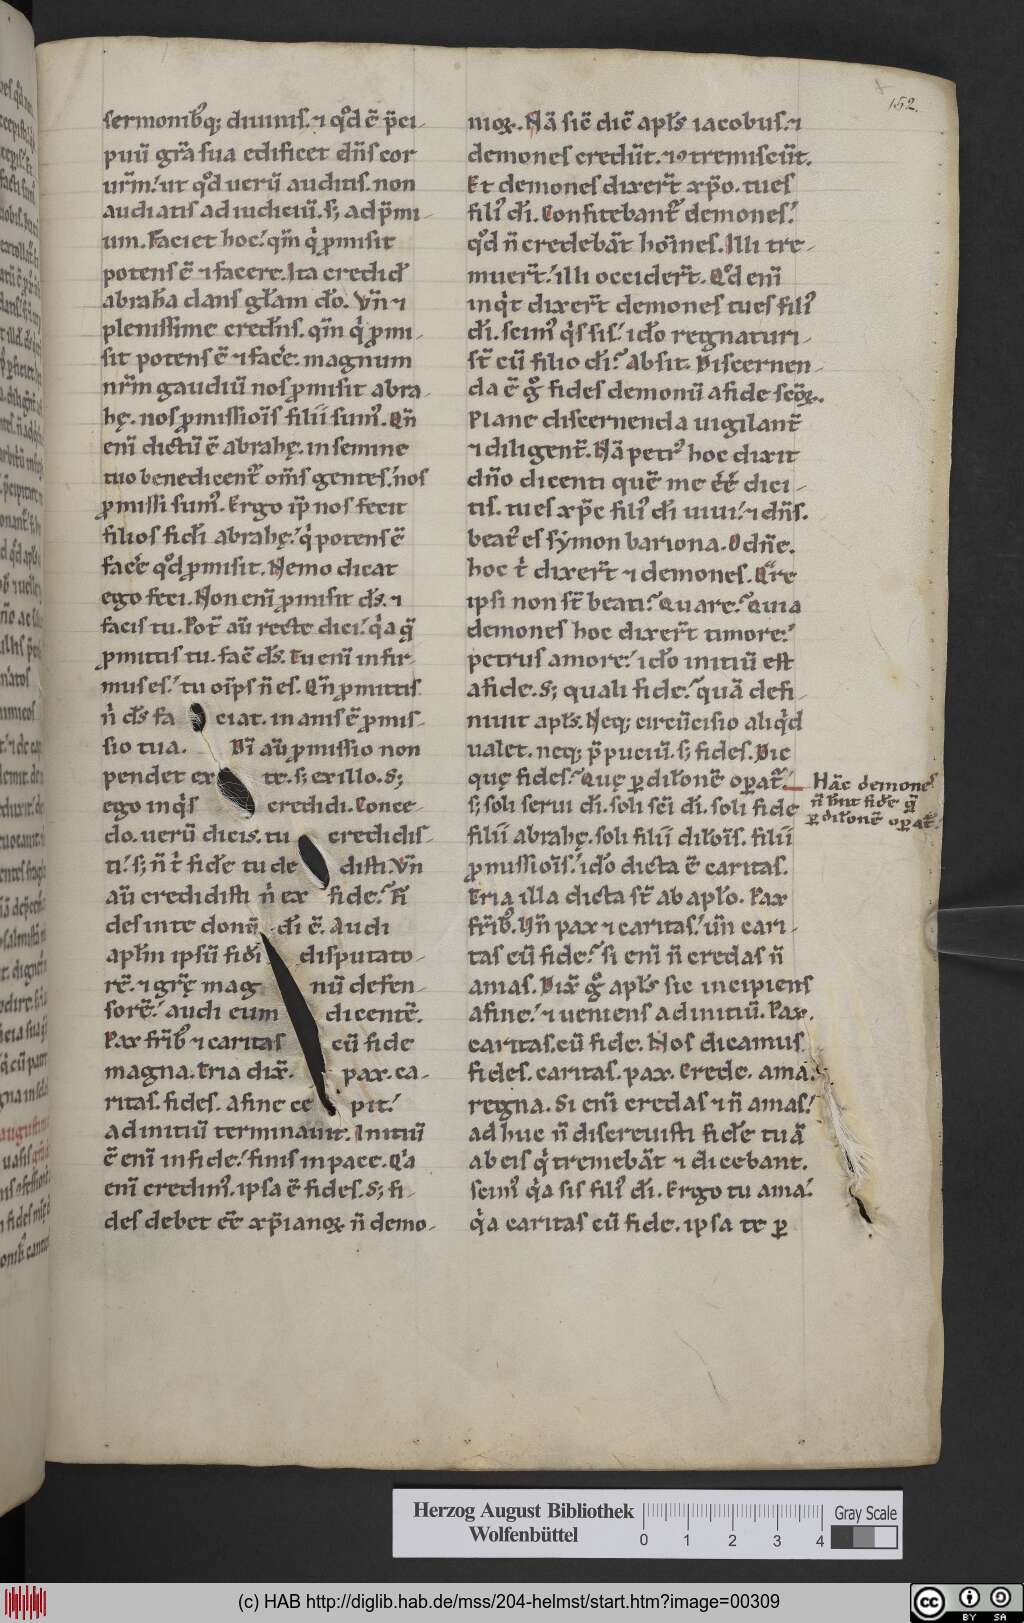 152.
sermonib᷒q; diuinis. ⁊ qd̾ ē p̄ci-
puū gr̄a sua edificet dn̄s cor
ur̄m.' ut qd̾ uerū auditis. non
audiatis ad iudiciū. s; ad p̄mi-
um. Faciet hoc.' qm̄ q̇ ꝓmisit
potens ē ⁊ facere. Ita credid̄
abrah̄a dans gl̄am dō. Vn̄ ⁊
plenissime credn̄s. qm̄ q̇ ꝓmi-
sit potens ē ⁊ fac̄e. magnum
nr̄m gaudiū nos ꝓmisit abra-
hę. nos ꝓmissiōis filii sum᷒. Qn̄
eni̅ dictū ē abrahę. in semine
tuo benedicent᷑ om̄s gentes.' nos
ꝓmissi sum᷒. Ergo ip̄ nos fecit
filios fidi̅ abrahę.' q̇ potens ē
fac̄e qd̾ ꝓmisit. Nemo dicat
ego feci. Non eni̅ ꝓmisit ds̄. ⁊
facis tu. Pot̄ aū recte dici.' q̇a q̄
ꝓmittis tu. fac̄ ds̄. Tu eni̅ infir-
mus es.' tu oīps n̄ es. Qn̄ ꝓmittis
n̄ ds̄ fa ciat. inanis ē ꝓmis-
sio tua. Di̅ aū ꝓmissio non
pendet ex te. s; ex illo. S;
ego inq̇s credidi. Conce-
do. uerū dicis. tu credidis-
ti.' s; n̄ t̄ fid̄e tu de disti. Vn̄
aū credidisti n̄ ex fide.᷒ Fi
des in te donū di̅ ē. Audi
aplm̄ ipsū fidi̅ disputato-
rē. ⁊ grę̄ mag nū defen-
sorē.' audi eum dicentē.
Pax fr̄ib᷒ ⁊ caritas cū fide
magna. Tria dix̄. pax. ca-
ritas. fides. A fine ce pit.'
ad initiū terminauit. Initiū
ē eni̅ in fide.' finis in pace. Q̇a
eni̅ credim᷒. ipsa ē fides. S; fi-
des debet ēē xp̄ianoꝝ n̄ demo-
nioꝝ. Nā sic̄ dic̄ apl̄s iacobus. ⁊
demones credūt. ⁊ ꝯtremiscūt.
Et demones dixer̄t xp̄o. tu es
fili᷒ di̅. Confitebant᷑ demones.'
qd̾ n̄ credebāt hoīnes. Illi tre-
muer̄t.' illi occider̄t. Qd̾ eni̅
inq̇t dixer̄t demones tu es fili᷒
di̅. scim᷒ q̇s sis.' idō regnaturi
st̄ cū filio di̅.᷒ absit. Discernen-
da ē g̊ fides demonū a fide sc̄oꝝ.
Plane discernenda uigilant̄
⁊ diligent̄. Nā petr᷒ hoc dixit
dn̄o dicenti quē me ēē dici-
tis. tu es xp̄c fili᷒ di̅ uiui.' ⁊ dn̄s.
beat᷒ es sẏmon bariona. O dn̄e.
hoc t̄ dixer̄t ⁊ demones. Q̄re
ipsi non st̄ beati.᷒ Quare.᷒ Quia
demones hoc dixer̄t timore.'
petrus amore.' idō initiū est
a fide. S; quali fide.᷒ quā defi-
niuit apl̄s. Neq; circūcisio aliq̇d
ualet. neq; p̄puciū. s; fides. Dic
quę fides.᷒ Quę ꝑ dilōnē oꝑat᷑.'
s; soli serui di̅. soli sc̄i di̅. soli fide
filii abrahę. soli filii dilōis. filii
ꝓmissiōis.' idō dicta ē caritas.
Tria illa dicta st̄ ab aplō. Pax
fr̄ib᷒. Vn̄ pax ⁊ caritas.' un̄ cari-
tas cū fide.᷒ si eni̅ n̄ credas n̄
amas. Dix̄ g̊ apl̄s sic incipiens
a fine.' ⁊ ueniens ad initiū. Pax.
caritas. cū fide. Nos dicamus
fides. caritas. pax. Crede. ama.
regna. Si eni̅ credas ⁊ n̄ amas.'
adhuc n̄ discreuisti fid̄e tuā
ab eis q̇ tremebāt ⁊ dicebant.
scim᷒ q̇a sis fili᷒ di̅. Ergo tu ama.'
q̇a caritas cū fide. ipsa te ꝑ
Hāc demones
n̄ hn̄t fid̄e q̄
ꝑ dilōnē oꝑat᷑.
Herzog August Bibliothek
Wolfenbüttel
0 1 2 3 4
Gray Scale
(c) HAB http://diglib.hab.de/mss/204-helmst/start.htm?image=00309
cc BY SA